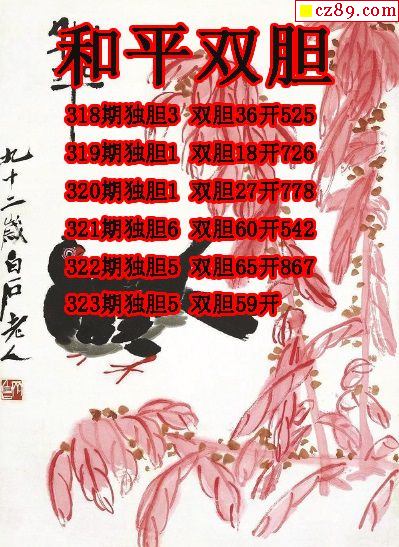 cz89.com
和平双胆
318期独胆3 双胆36开525
319期独胆1 双胆18开726
320期独胆1 双胆27开778
321期独胆6 双胆60开542
322期独胆5 双胆65开867
323期独胆5 双胆59开
九十二岁白石老人